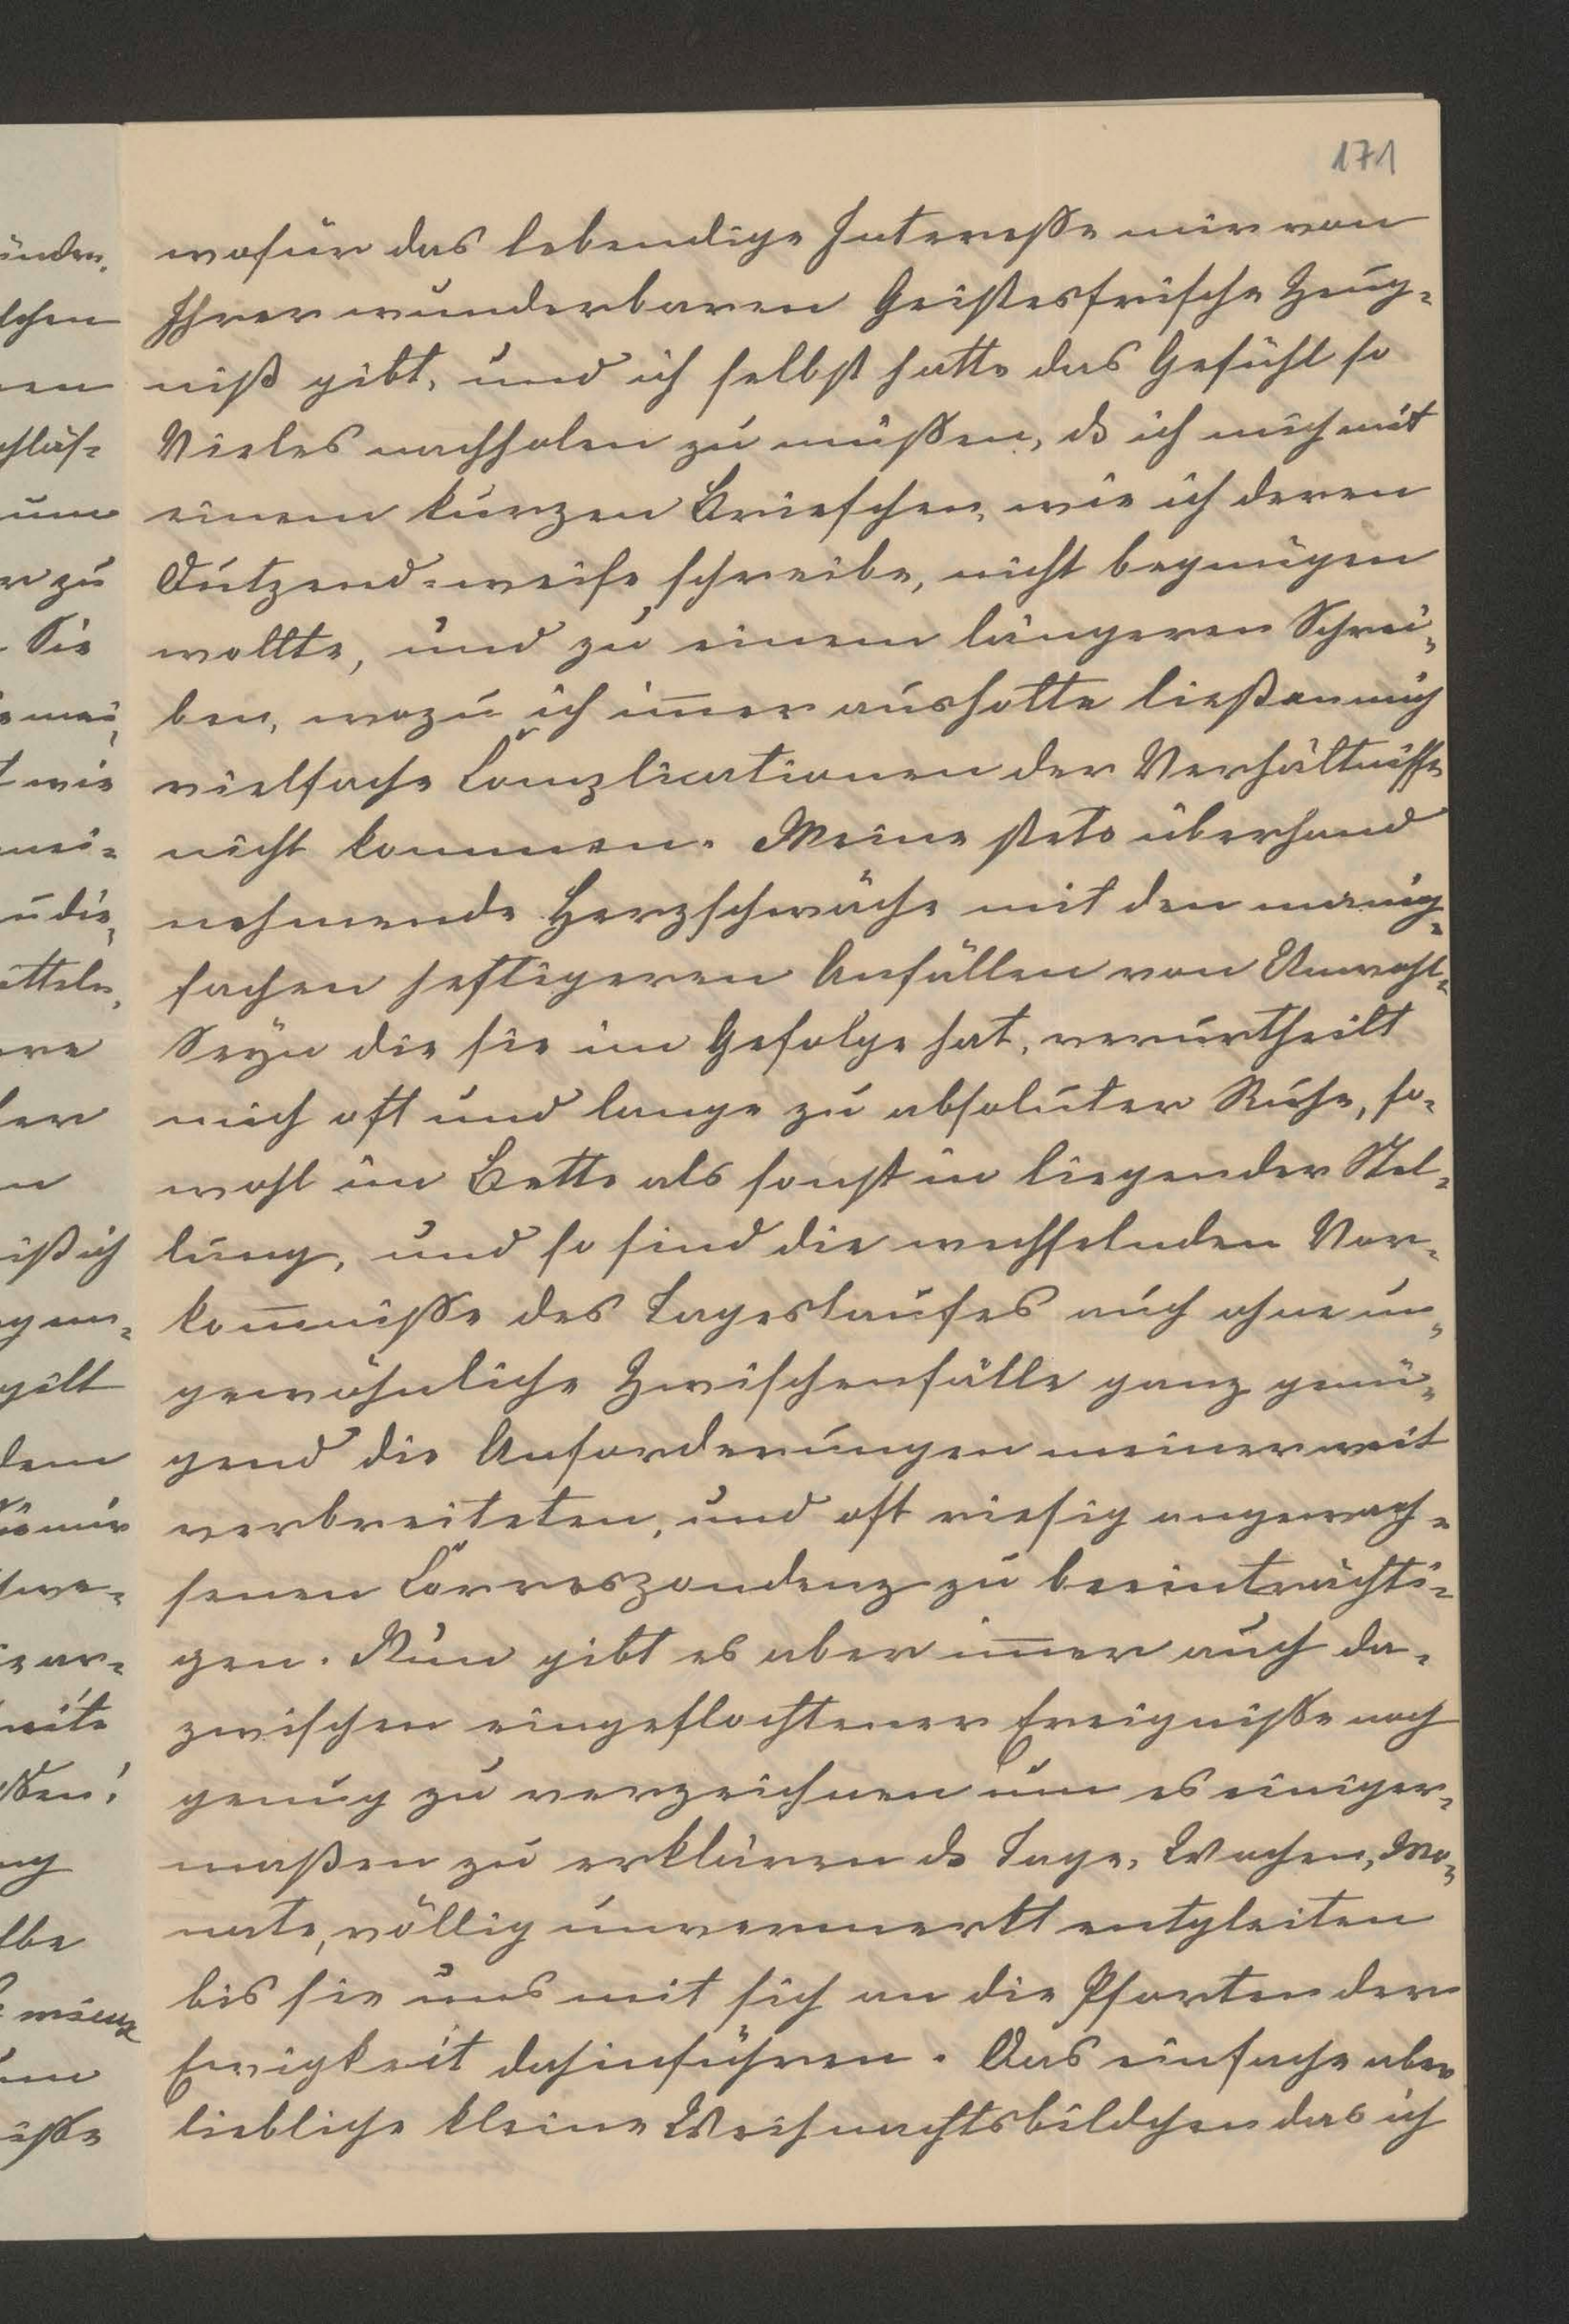 171
wofür das lebendige Interesse mir von
Ihrer wunderbaren Geistesfrische Zeug-
niß gibt, und ich selbst hatte das Gefühl so
Vieles nachholen zu müssen, ds ich mich mit
einem kurzen Briefchen, wie ich deren
Dutzend-weise schreibe, nicht begnügen
wollte, und zu einem längeren Schrei-
ben, wozu ich im̅er aushol­te ließen mich
vielfache Complicationen der Verhältnisse
nicht kommen. Meine stets überhand
nehmende Herzschwäche mit den manig-
fachen heftigeren Anfällen von Unwohl-
Seyn die sie im Gefolge hat, verurtheilt
mich oft und lange zu absoluter Ruhe, so-
wohl im Bette als sonst in liegender Stel-
lung, und so sind die wechselnden Vor-
kom̅nisse des Tageslaufes auch ohne un-
gewöhnliche Zwischenfälle ganz genü-
gend die Anforderungen meiner weit
verbreiteten, und oft riesig angewach-
senen Correspondenz zu beeinträchti-
gen. Nun gibt es aber im̅er auch da-
zwischen eingeflochtener Ereignisse noch
genug zu verzeichnen um es einiger-
maßen zu erklären ds Tage, Wochen, Mo-
nate, völlig unvermerkt entgleiten
bis sie uns mit sich an die Pforten der
Ewigkeit dahinführen. Das einfache aber
liebliche kleine Weihnachtsbildchen das ich